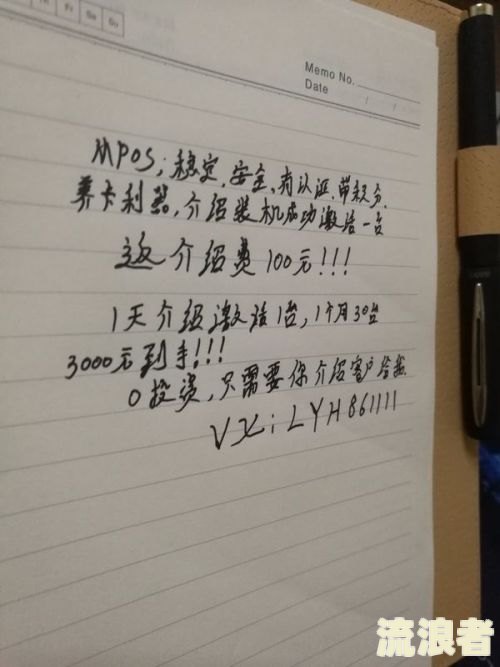 Fr Sa Su
Memo No.
Date / /
MPOS；稳定、安全、有认证、带积分、
养卡利器，介绍装机成功激活一台
返介绍费100元!!!
1天介绍激活1台，1个月30台
3000元到手!!!
0投资，只需要你介绍客户给我.
VX：LYH861111
流浪者